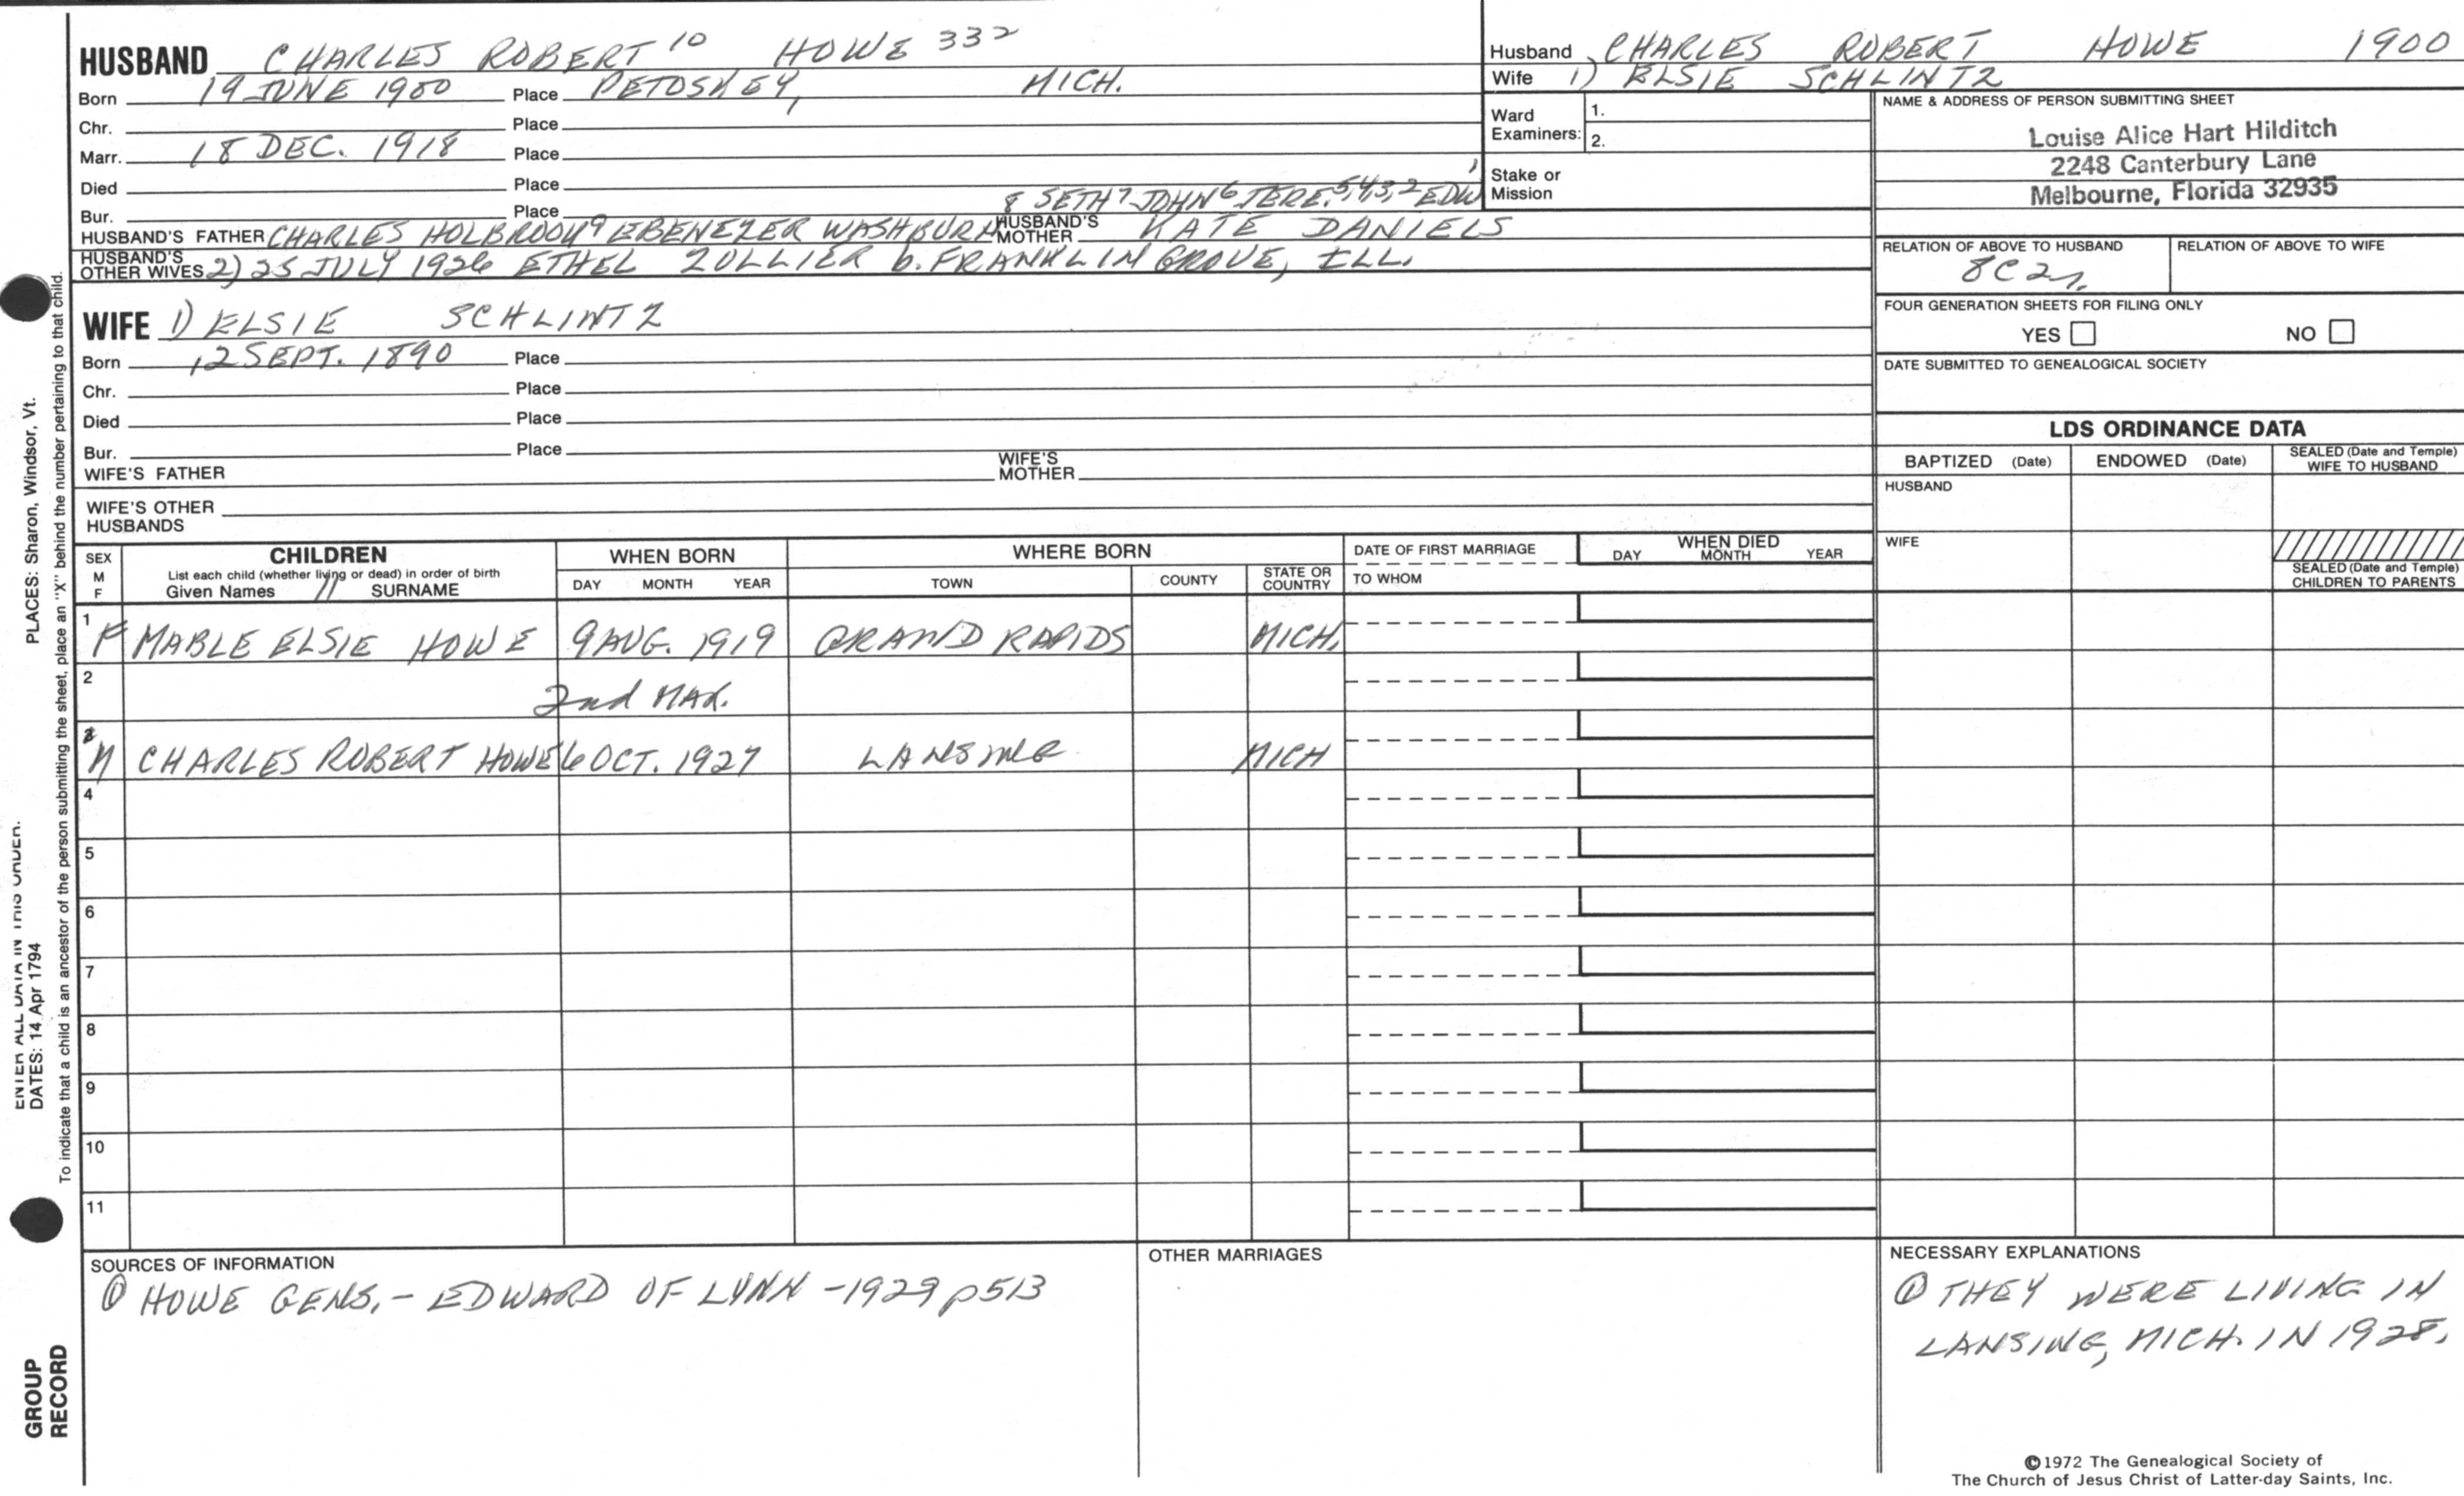 HUSBAND CHARLES ROBERT 10 HOWE 332
Born 19 JUNE 1900 Place PETOSKEY, MICH.
Chr. Place
Marr. 18 DEC. 1918 Place
Died Place
Bur. Place
8 SETH 7 JOHN 6 JERE. 5,4,3,2 EDW 1
HUSBAND'S FATHER CHARLES HOLBROOK 9 EBENEZER WASHBURN HUSBAND'S MOTHER KATE DANIELS
HUSBAND'S OTHER WIVES 2) 25 JULY 1926 ETHEL ZOLLIER b. FRANKLIN GROVE, ILL.
WIFE 1) ELSIE SCHLINTZ
Born 12 SEPT. 1890 Place
Chr. Place
Died Place
Bur. Place
WIFE'S FATHER WIFE'S MOTHER
WIFE'S OTHER HUSBANDS
Husband CHARLES ROBERT HOWE 1900
Wife 1) ELSIE SCHLINTZ
Ward Examiners: 1.
2.
Stake or Mission
NAME & ADDRESS OF PERSON SUBMITTING SHEET
Louise Alice Hart Hilditch
2248 Canterbury Lane
Melbourne, Florida 32935
RELATION OF ABOVE TO HUSBAND RELATION OF ABOVE TO WIFE
8C2r.
FOUR GENERATION SHEETS FOR FILING ONLY
YES NO
DATE SUBMITTED TO GENEALOGICAL SOCIETY
LDS ORDINANCE DATA
BAPTIZED (Date) ENDOWED (Date) SEALED (Date and Temple) WIFE TO HUSBAND
HUSBAND
WIFE
SEALED (Date and Temple) CHILDREN TO PARENTS
SEX M F CHILDREN WHEN BORN WHERE BORN DATE OF FIRST MARRIAGE WHEN DIED
List each child (whether living or dead) in order of birth
Given Names SURNAME DAY MONTH YEAR TOWN COUNTY STATE OR COUNTRY TO WHOM DAY MONTH YEAR
1 F MABLE ELSIE HOWE 9 AUG. 1919 GRAND RAPIDS MICH.
2 2nd MAR.
M CHARLES ROBERT HOWE 6 OCT. 1927 LANSING MICH
4
5
6
7
8
9
10
11
SOURCES OF INFORMATION
① HOWE GENS. - EDWARD OF LYNN - 1929 p513
OTHER MARRIAGES
NECESSARY EXPLANATIONS
① THEY WERE LIVING IN
LANSING, MICH. IN 1928.
©1972 The Genealogical Society of
The Church of Jesus Christ of Latter-day Saints, Inc.
ENTER ALL DATA IN THIS ORDER.
DATES: 14 Apr 1794 PLACES: Sharon, Windsor, Vt.
To indicate that a child is an ancestor of the person submitting the sheet, place an "X" behind the number pertaining to that child.
GROUP
RECORD